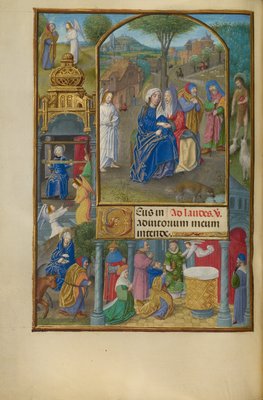 Deus in Ad laudes. V.
adiutorium meum
intende.